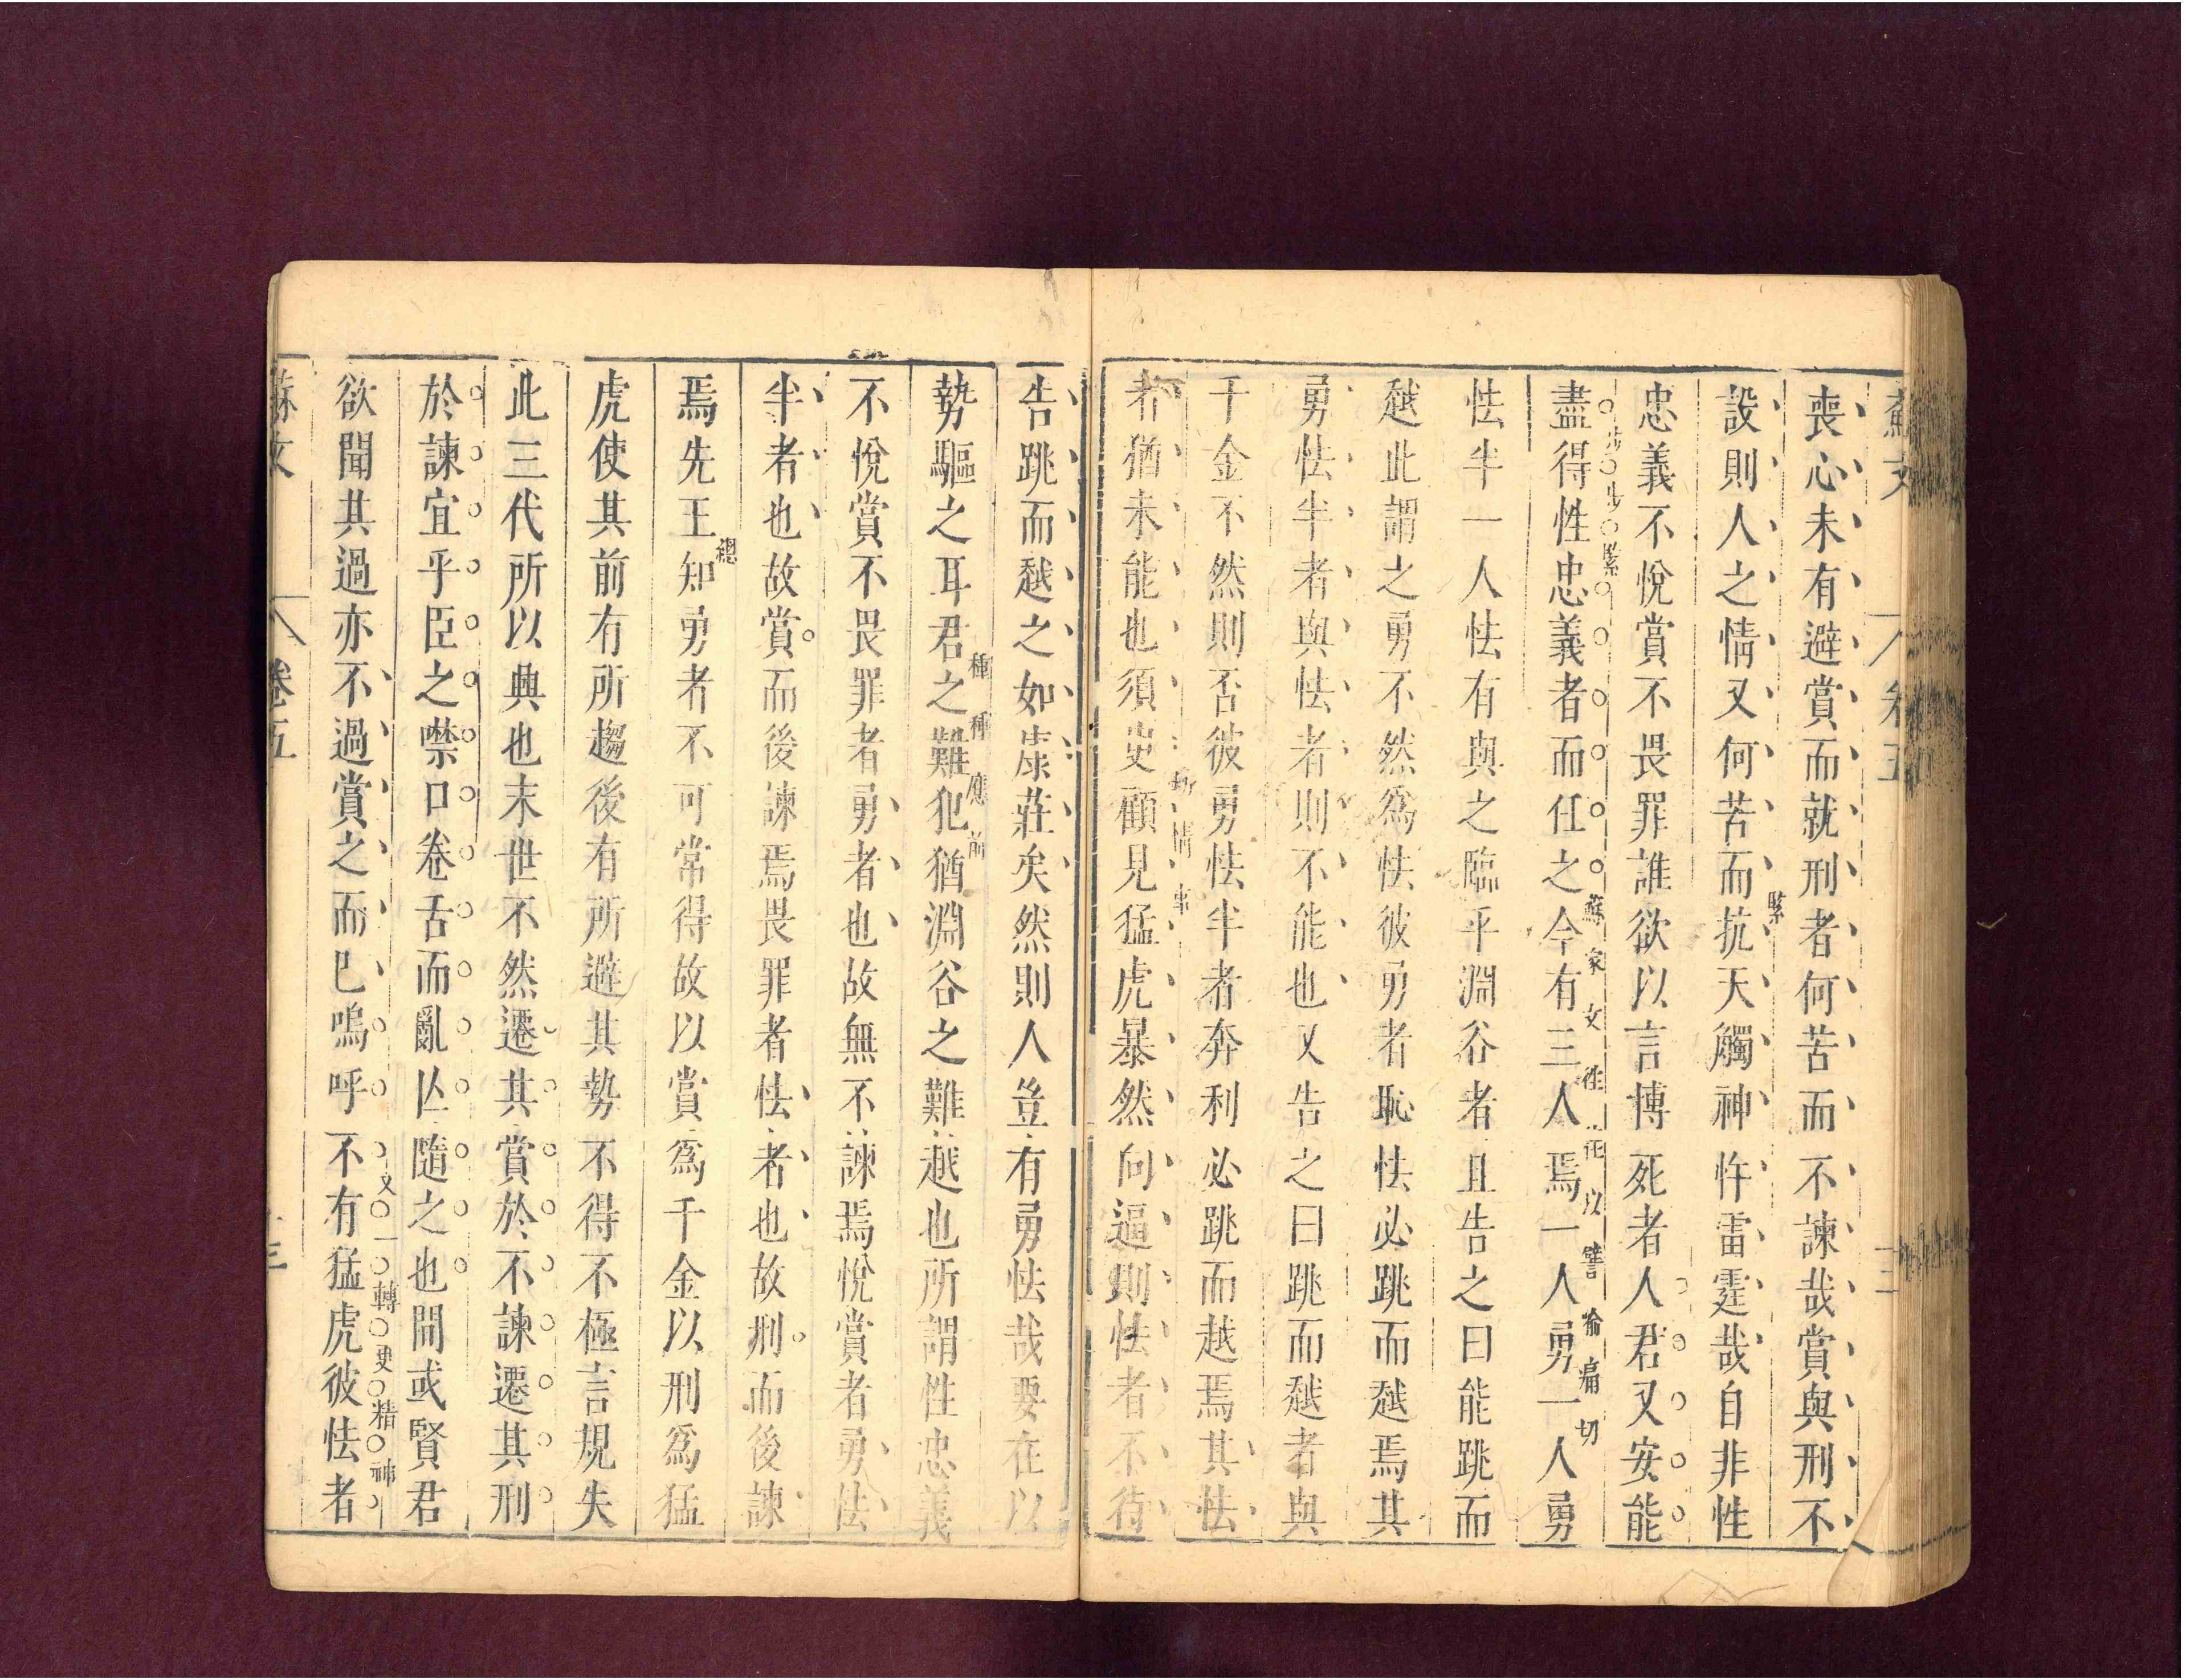 蘇文
卷五
喪心未有避賞而就刑者何苦而不諫哉賞與刑不
設則人之情又何苦而抗天觸神忤雷霆哉自非性
緊
忠義不悅賞不畏罪誰欲以言博死者人君又安能
盡得性忠義者而任之今有三人焉一人勇一人勇
步步緊
蘇家文徃徃以譬喻痛切
怯半一人怯有與之臨乎淵谷者且告之曰能跳而
越此謂之勇不然為怯彼勇者恥怯必跳而越焉其
勇怯半者與怯者則不能也又告之曰跳而越者與
千金不然則否彼勇怯半者奔利必跳而越焉其怯
者猶未能也須臾顧見猛虎暴然向逼則怯者不待
情事
告跳而越之如康莊矣然則人豈有勇怯哉要在以
勢驅之耳君之難犯猶淵谷之難越也所謂性忠義
種種應前
不悅賞不畏罪者勇者也故無不諫焉悅賞者勇怯
半者也故賞而後諫焉畏罪者怯者也故刑而後諫
焉先王知勇者不可常得故以賞為千金以刑為猛
總
虎使其前有所趨後有所避其勢不得不極言規失
此三代所以興也末世不然遷其賞於不諫遷其刑
於諫宜乎臣之噤口卷舌而亂亾隨之也間或賢君
欲聞其過亦不過賞之而巳嗚呼不有猛虎彼怯者
又一轉更精神
蘇文
卷五